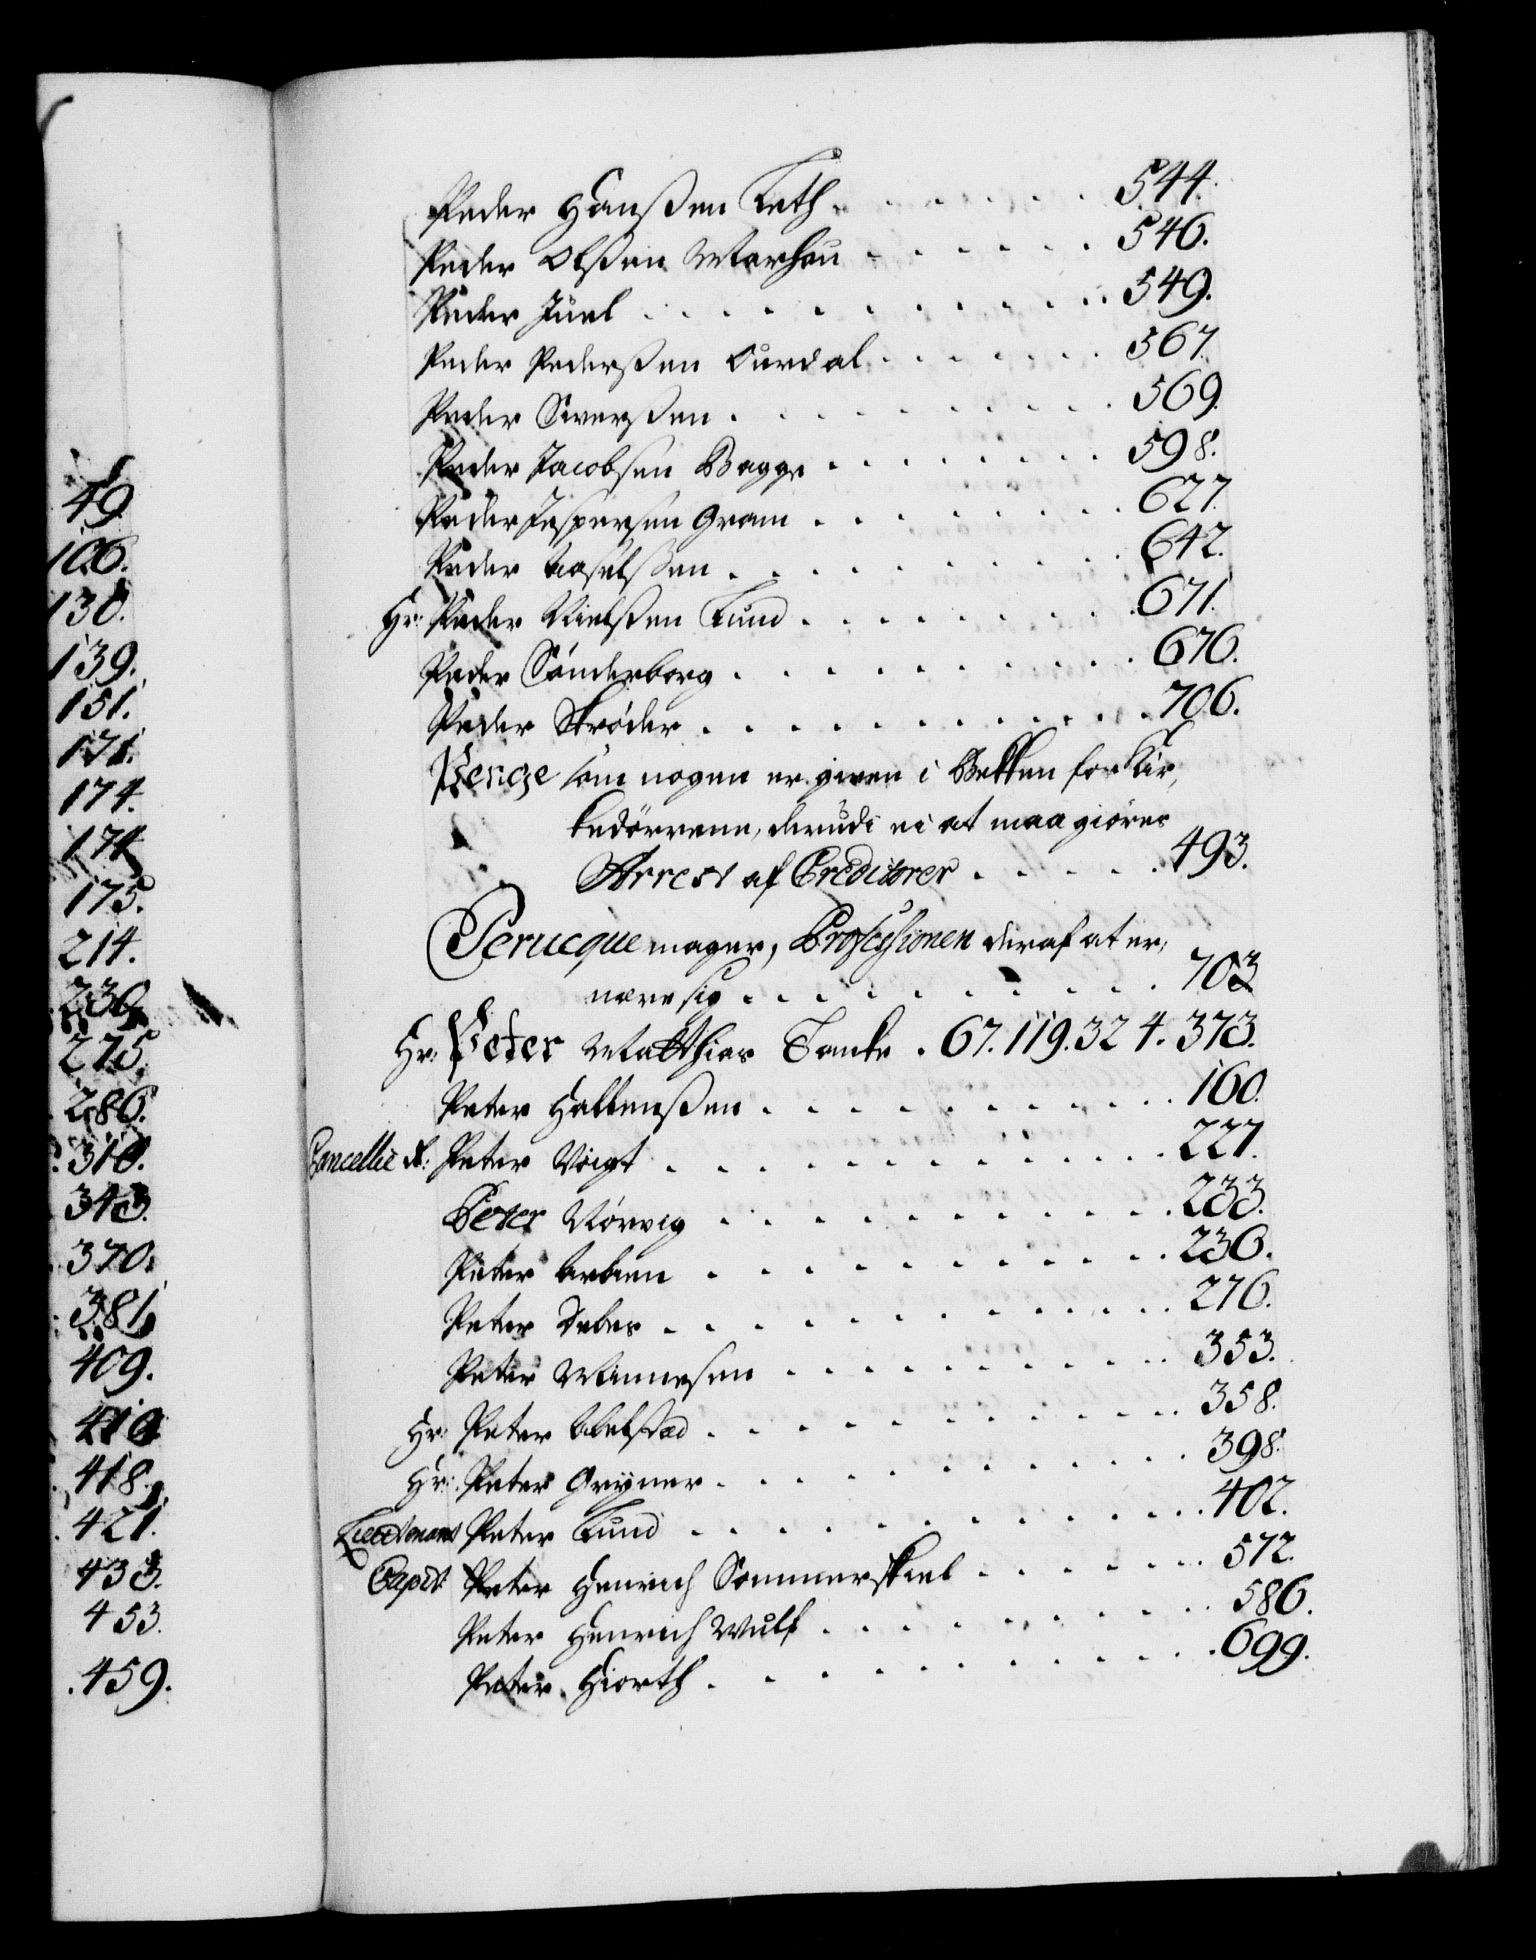 49
106.
130.
139.
151.
171.
174.
174
175.
214.
236
275.
286.
310.
343.
370.
381
409.
416
418.
421.
433.
453.
.459.
Peder Hanßen Leth . . . . . . 544.
Peder Olßen Marhau . . . . . . 546.
Peder Juel . . . . . . . . . . 549.
Peder Pederßen Aurdal . . . . . . 567.
Peder Swerßen . . . . . . . . . 569.
Peder Jacobsen Bagge . . . . . . . . 598.
Peder Jespersen Gram . . . . . . . . 627.
Peder Axselßen . . . . . . . . . 642.
Hr: Peder Nielßen Lund . . . . . . . . 671.
Peder Sönderborg . . . . . . . . . 676.
Peder Ströder . . . . . . . . . . . 706.
Penge som nogen er given i Bekken for Kir,
kedörrene, derudi ei at maa giöres
Arrest af Creditorer . . . . . 493.
Perucquemager, Professionen deraf at er,
nære sig . . . . . . . . . 703
Hr: Peter Matthias Tanke . 67. 119. 324. 373.
Peter Halkenßen . . . . . . . . . 160.
Cancellie R: Peter Voigt . . . . . . . . . . . 227.
Peter Nörvig . . . . . . . . . . 233.
Peter Arben . . . . . . . . . . 236.
Peter Debes . . . . . . . . . . . 276.
Peter Minnesen . . . . . . . . . 353.
Hr: Peter Abelsted . . . . . . . . . . 358.
Hr: Peter Gryner . . . . . . . . . . . 398.
Lieutenant Peter Lund . . . . . . . . . . . 402.
Capit: Peter Henrich Sommerskiel . . . . . . 572.
Peter Henrich Wulf . . . . . . . . . 586.
Peter Hiorth . . . . . . . . . . . 699.